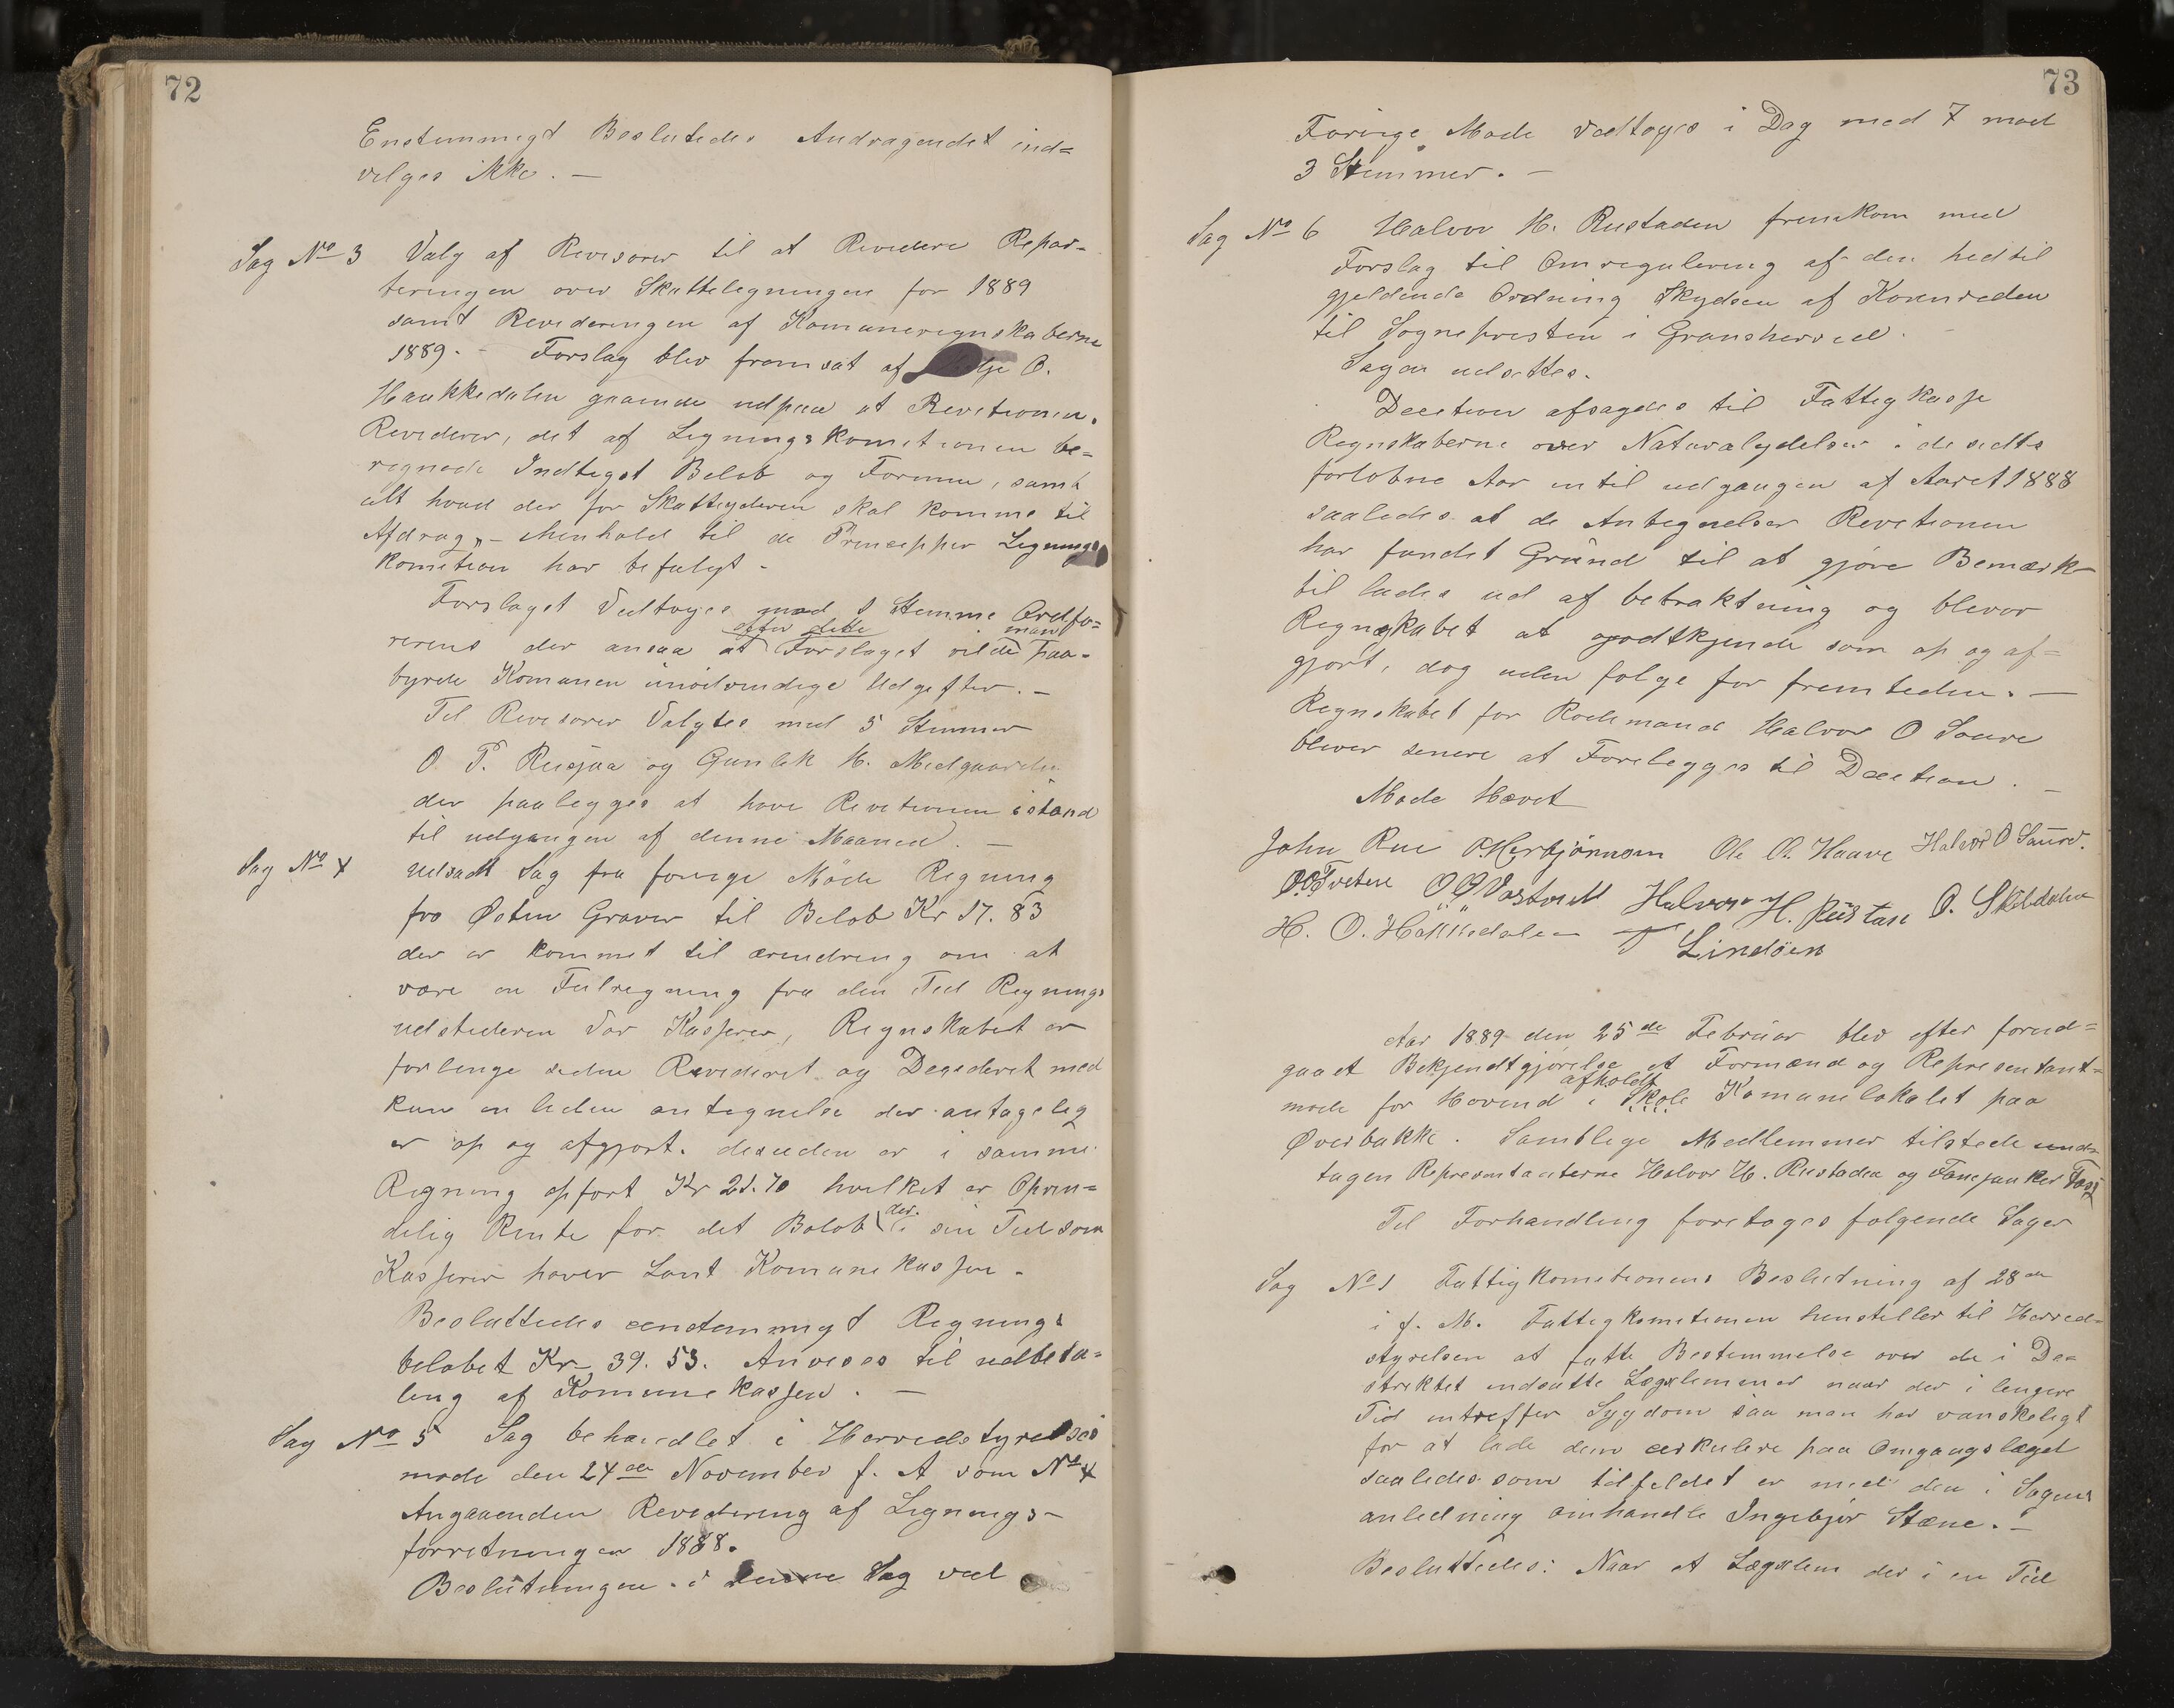 72
Enstemmigt Beslutedes Andragendet ind=
vilges ikke. —
Sag No 3 Valg af Revisorer til at Revidere Repar-
teringen over Skattelegningen for 1889
samt Revideringen af Komuneregnskaberne
1889. - Forslag blev fremsat af O.
Haukkedalen gaaende udpaa at Revetionen
Reviderer, det af Legnings kometionen be=
regnede Indtegst Beløb og Formue, samt
alt hvad der for Skatteyderen skal komme til
Afdrag, - ihenhold til de Prinsepper Legnings
kometion har befulgt -
Forslaget Vedtoges mod 1 Stemme Ordfø=
rerens der ansaa at efter dette Forslaget vilde man paa-
byrde Komunen unødvendige Udgifter. —
Til Revisorer Valgtes med 5 Stemmer
O. P. Rusjaa og Gunlek H. Midgaarden
der paalegges at have Revetionen istand
til udgangen af denne Maaned. —
Sag No 4 Udsadt Sag fra forrige Møde Regning
fra Østen Graver til Beløb Kr 17. 83
der er kommet til ærendring om at
være en Feilregning fra den Tid Regnings
udstederen var Kasserer, Regnskabet er
forlenge siden Revideret og Desideret med
kun en liden antegnelse der antagelig
er op og afgjort. desuden er i samme
Regning opført Kr 21.70 hvilket er Opren=
delig Rente for det Beløb der i sin Tid som
Kasserer haver Lant Komunekassen -
Besluttedes eenstemmigt Regnings
beløbet Kr- 39. 53. Anvises til udbeta=
ling af Komunekassen. —
Sag No 5 Sag behandlet i Herredstyrelses
møde den 24de November f. A som No 4
Angaaenden Revidering af Legnings-
forretningen 1888.
Beslutningen i denne Sag ved
73
Forrige Møde vedtoges i Dag med 7 mod
3 Stemmer. —
Sag No 6 Halvor H. Rustaden fremkom med
Forslag til Omregulering af den hidtil
gjeldende Ordning Skydsen af Kornreden
til Sognepresten i Gransherred. -
Sagen udsettes.
Decetion afsagdes til Fattigkasse
Regnskaberne over Naturalydelser i de sidste
forløbne Aar intil udgangen af Aaret 1888
saaledes at de Antegnelser Revetionen
har fundet Grund til at gjøre Bemærk-
til lades ud af betraktning og bliver
Regnskabet at godtkjende som op og af=
gjort, dog uden følge for fremtiden. —
Regnskabet for Rodemand Halvor O Saure
bliver senere at Forelegges til Decetion. —
Møde Hævet
John Rue O. Herbjørnsen Ole O. Haave Halvor O Saure.
O.O. Tveten O. O. Vastveit Halvor H. Rustan O. Skibdalen
H. O. Håkkedalen T Lindöen
Aar 1889 den 25de Februar blev efter forud=
gaaet Bekjendtgjørelse et Formænd og Representant=
møde for Hovind afholdt i Skole Komunelokalet paa
Øverbakke. Samtlige Medlemmer tilstede und-
tagen Representanterne Halvor H. Rustaden og Fanejunker
Til Forhandling foretoges følgende Sager
Sag No 1 Fattigkometionens Beslutning af 28de
i f. M. Fattigkometionen henstiller til Herred-
styrelsen at fatte Bestemmelse over de i De=
striktet indsatte Lægslemmer naar der i lengere
Tid intreffer Sygdom saa man har vanskeligt
for at lade dem cirkulere paa Omgangslægd
saaledes som tilfeldet er med den i Sagens
anledning omhandle Ingebjør Stæne. —
Besluttedes: Naar et Lægslem der i en Tid